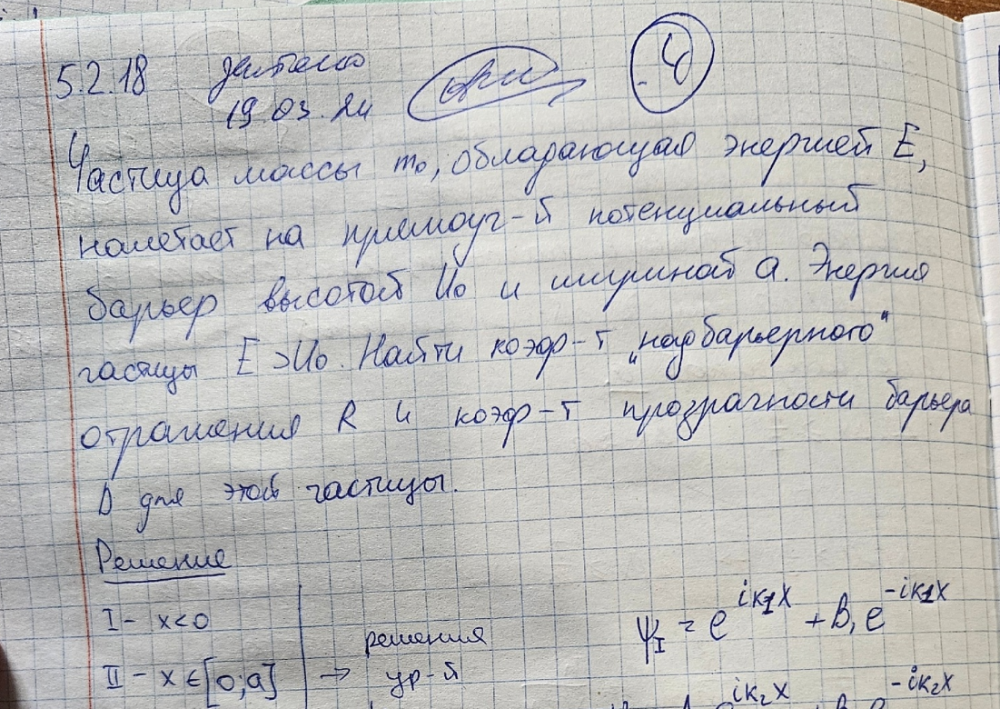 5.2.18 зачтено 4
19.03.24
Частица массы m₀, обладающая энергией E,
налетает на прямоуг-й потенциальный
барьер высотой U₀ и шириной a. Энергия
частицы E>U₀. Найти коэф-т „надбарьерного"
отражения R и коэф-т прозрачности барьера
D для этой частицы.
Решение
I - x<0 решения ψ_I = e^{ik₁x} + B₁e^{-ik₁x}
II - x ∈ [0;a] → ур-й e^{ik₂x} e^{-ik₂x}